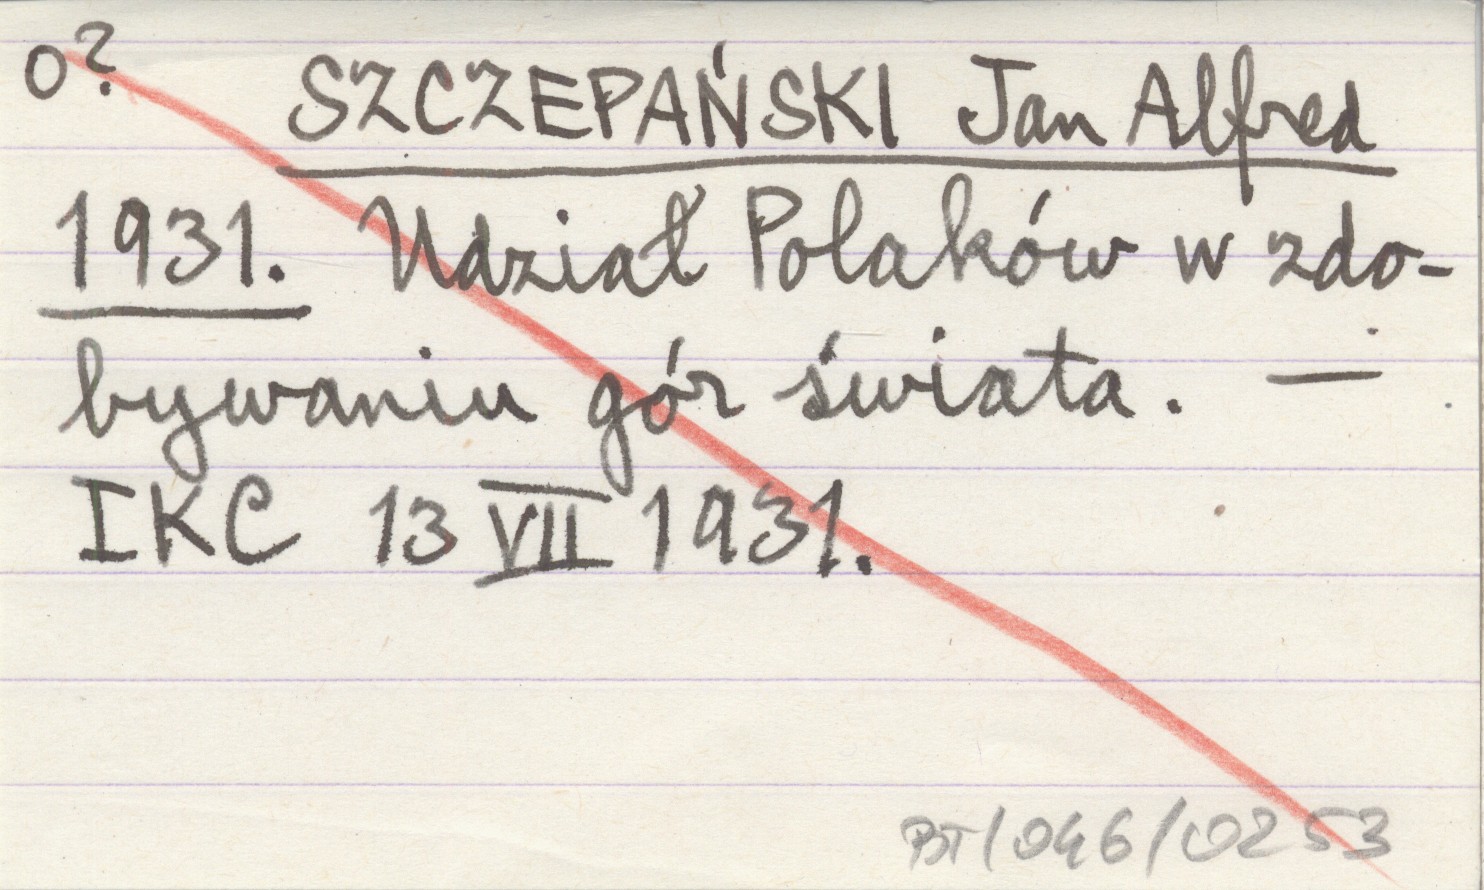 o?
SZCZEPAŃSKI Jan Alfred
1931. Udział Polaków w zdo-
bywaniu gór świata. —
IKC 13 VII 1931.
BT/046/0253